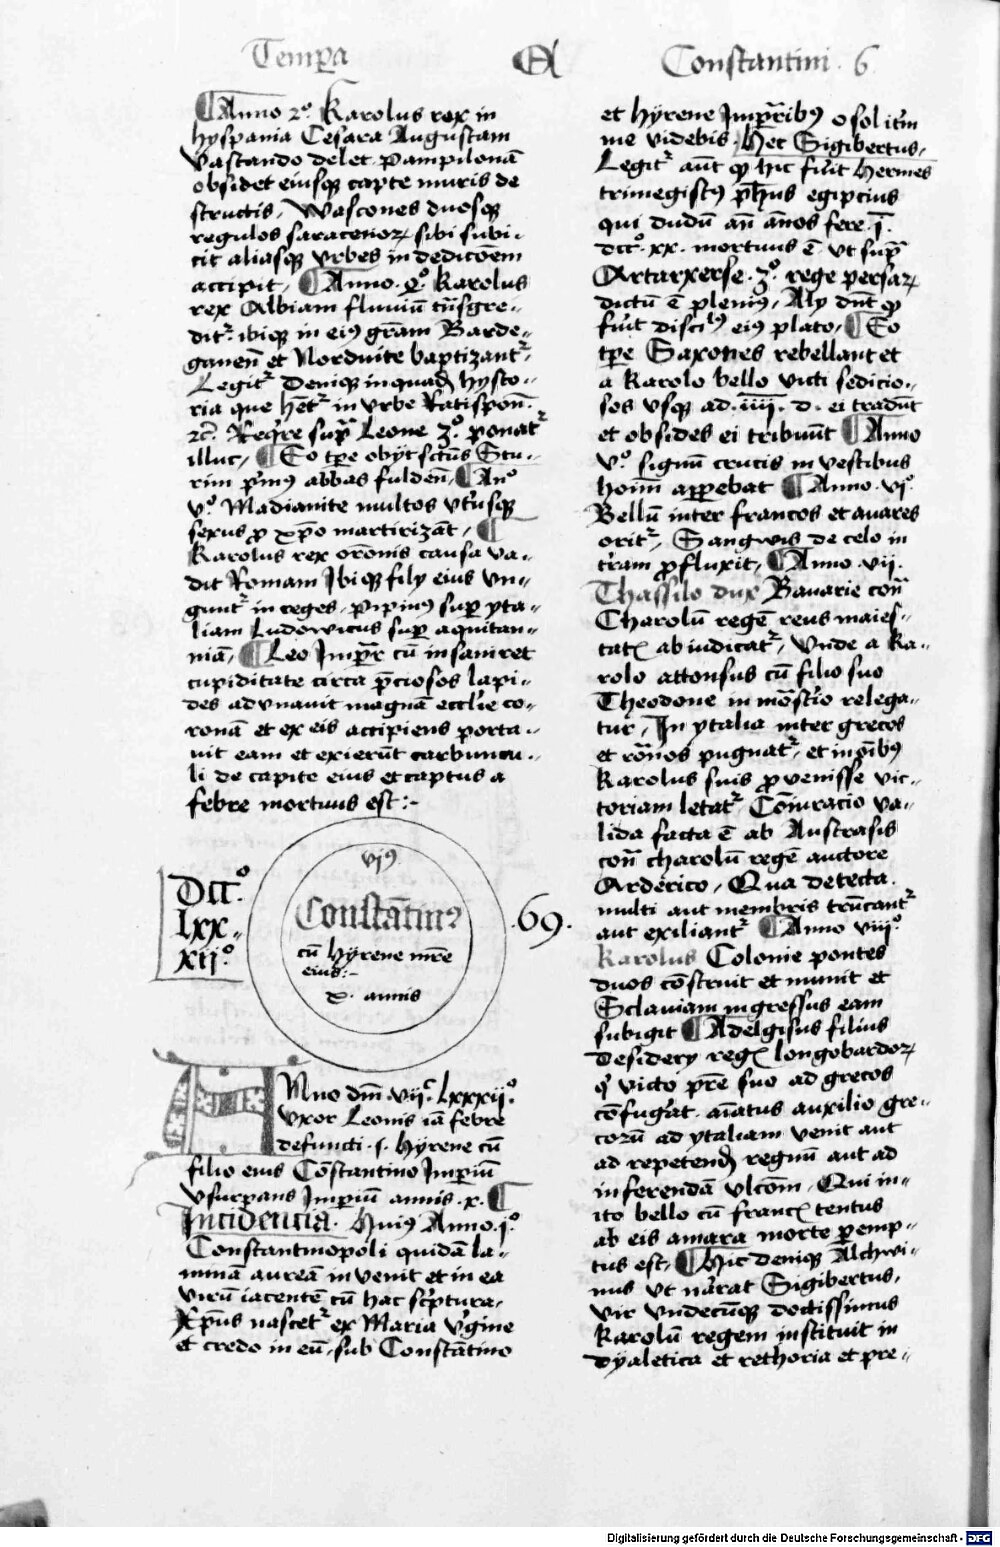 Tempa Constantini. 6
¶Anno 2º. Karolus rex in
hyspania Cesara Augustam
vastando delet. Pampilonā
obsidet eiusqꝫ capte muris de
structis, Wascones duosqꝫ
regulos saracenoꝝ sibi subi-
cit aliasqꝫ vrbes in dedicōem
accipit, ¶Anno. Karolus
rex Albiam fluuiū tūsgre-
ditʳ. ibiqꝫ in eiꝰ grām Barde-
ganeñ et Norduite baptizantʳ,
Legitʳ deniqꝫ in hysto-
ria que hētʳ in vrbe Ratispoñ.
supᵃ Leone 3º. ponatʳ
illuc, ¶Eo tpe obijt sctūs Stu-
rim pⁱmꝰ abbas fuldeñ, ¶Anº
vº. Madianite multos vtⁱusqꝫ
sexus ꝓ xp̄o martirizāt, ¶
Karolus rex orōnis causa va-
dit Romam Ibiqꝫ filij eius vn-
guntʳ in reges, pipinꝰ suꝑ yta-
liam Ludowicus suꝑ aquitan-
niā, ¶Leo Impʳ cū insaniret
cupiditate circa p̄ciosos lapi-
des adunauit magnā ecclie co-
ronā et ex eis accipiens porta-
uit eam et exierūt carbuncu-
li de capite eius et captus a
febre mortuus est:-
vjꝰ
DCCº.
lxx-
xijº.
Constātinꝰ .69.
cū hyrene mr̄e
eius:-
x. annis
Anno dm̄. vijᶜ. lxxxijº.
vxor Leonis iā febre
defuncti .s. hyrene cū
filio eius Cōstantino Impⁱiū
vsurpans Impⁱiū annis .x. ¶
Incidentia. Huiꝰ Anno .jº
Constantinopoli quidā la-
minā aureā inuenit et in ea
virū iacentē cū hac scⁱptura,
Xp̄us nascetʳ ex Maria vⁱgine
et credo in eū, sub Constātino
et hyrene Impᵃribꝰ o sol itⁱm
me videbis. Hec Sigibertus,
Legitʳ aūt qꝫ hic fuit hermes
trimegistꝰ ph̄us egipcius
qui dudū añ ānos fere .j.
dccº. xx. mortuus ē vt supᵃ
Artarxerse. 3º. rege persaꝝ
dictū ē pleniꝰ, Alij dn̄t qꝫ
fuit discⁱlꝰ eiꝰ plato, ¶Eo
tpe Saxones rebellant et
a Karolo bello victi sedicio-
sos vsqꝫ ad .iiij. d. ei tradūt
et obsides ei tribuūt ¶Anno
vº. signū crucis in vestibus
hom̄ apꝑebat ¶Anno. vjº.
Bellū inter francos et auares
oritʳ, Sangwis de celo in
tⁱram ꝓfluxit, ¶Anno. vij.
Thassilo dux Bauarie con̄
Charolū regē reus maies-
tatꝭ abiudicatʳ, vnde a Ka-
rolo attonsus cū filio suo
Theodone in mōastⁱio relega-
tur, In ytalia inter grecos
et rōnos pugnatʳ, et in oībꝰ
Karolus suis ꝓvenisse vic-
toriam letatʳ Cōiuracio va-
lida facta ē ab Austrasis
con̄ charolū regē auctore
Arderico, Qua detecta
multi aut membris trūcantʳ
aut exiliantʳ ¶Anno viijº.
Karolus Colonie pontes
duos cōstruit et munit et
Sclauiam ingressus eam
subigit ¶Adelgisus filius
desiderij regꝭ longobardoꝝ
qⁱ victo p̄re suo ad grecos
cōfugⁱat. aīatus auxilio gre-
corū ad ytaliam venit aut
ad repetend̄ regnū aut ad
inferendā vlcōm, Qui in-
ito bello cū francꝭ tentus
ab eis amara morte ꝑemp-
tus est, ¶Hic deniqꝫ Alchwi-
nus vt nᵃrat Sigibertus,
vir vndecūqꝫ doctissimus
Karolū regem instituit in
dyaletica et rethoria et pre-
Digitalisierung gefördert durch die Deutsche Forschungsgemeinschaft - DFG